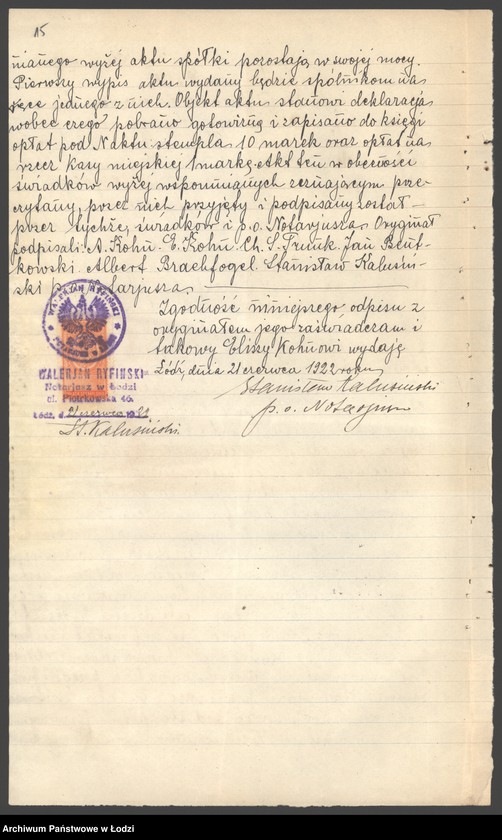 15
nianego wyżej aktu spółki pozostają w swojej mocy.
Pierwszy wypis aktu wydany będzie spólnikom na
ręce jednego z nich. Objekt aktu stanowi deklaracja
wobec czego pobrano gotowizną i zapisano do księgi
opłat pod N aktu stempla 10 marek oraz opłat na
rzecz Kasy miejskiej 1 markę. Akt ten w obecności
świadków wyżej wspomnianych zeznającym prze-
czytany, przez nich przyjęty i podpisany został
przez tychże, świadków i p.o. Notarjusza. Oryginał
podpisali: A. Kohn. E. Kohn. Ch. S. Prunk. Jan Beut-
kowski. Albert Brachfogel. Stanisław Kalusiń-
ski p. Notarjusza
Zgodność niniejszego odpisu z
oryginałem jego zaświadczam i
takowy Eliszy Kohnowi wydaję
Łódź, dnia 21 czerwca 1922 roku
Stanisław Kalusiński
p. o. Notarjusza
WALERJAN RYFIŃSKI
WALERJAN RYFIŃSKI
Notarjusz w Łodzi
ul. Piotrkowska 46.
Łódź, d. 21 czerwca 1922
St. Kalusiński
Archiwum Państwowe w Łodzi